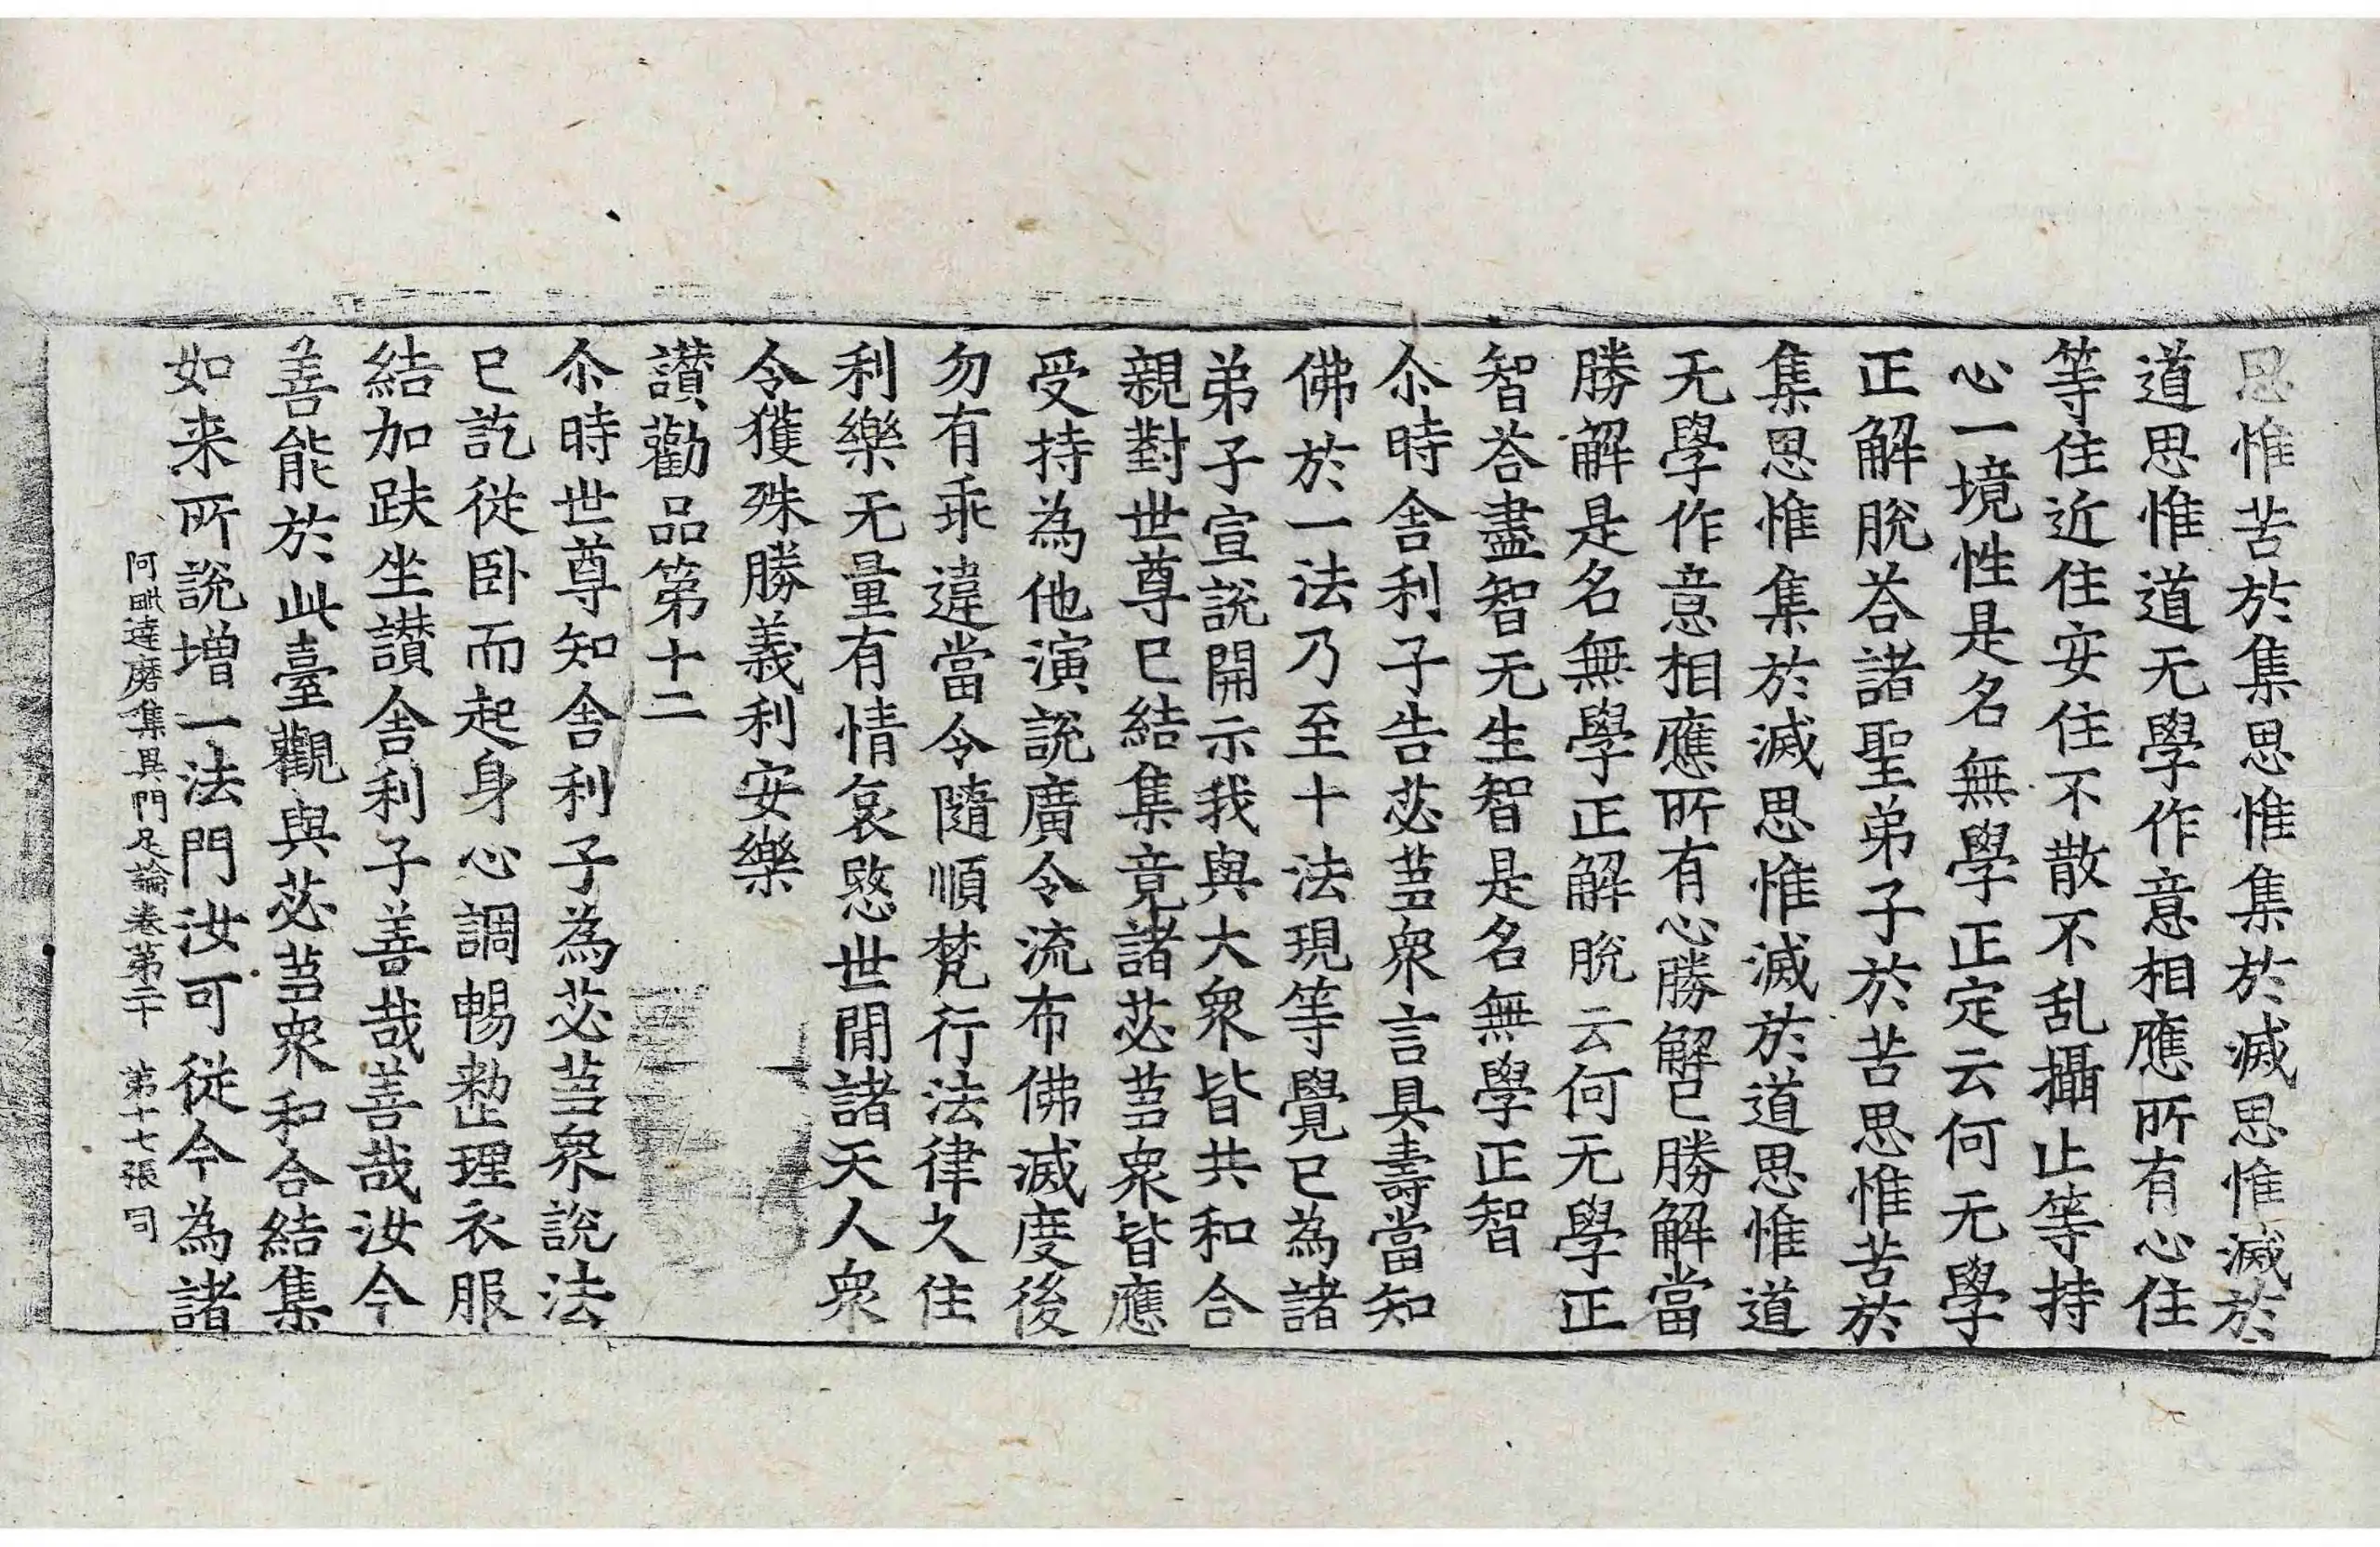 思惟苦於集思惟集於滅思惟滅於
道思惟道无學作意相應所有心住
等住近住安住不散不乱攝止等持
心一境性是名無學正定云何无學
正解脫荅諸聖弟子於苦思惟苦於
集思惟集於滅思惟滅於道思惟道
无學作意相應所有心勝解已勝解當
勝解是名無學正解脫云何无學正
智荅盡智无生智是名無學正智
尒時舍利子告苾芻衆言具壽當知
佛於一法乃至十法現等覺已為諸
弟子宣說開示我與大衆皆共和合
親對世尊已結集竟諸苾芻衆皆應
受持為他演說廣令流布佛滅度後
勿有乖違當令隨順梵行法律久住
利樂无量有情哀愍世間諸天人衆
令獲殊勝義利安樂
讃勸品第十二
尒時世尊知舍利子為苾芻衆說法
已訖從卧而起身心調暢整理衣服
結加趺坐讃舍利子善哉善哉汝今
善能於此臺觀與苾芻衆和合結集
如来所說增一法門汝可從今為諸
阿毗達磨集異門足論卷第二十 第十七張 司